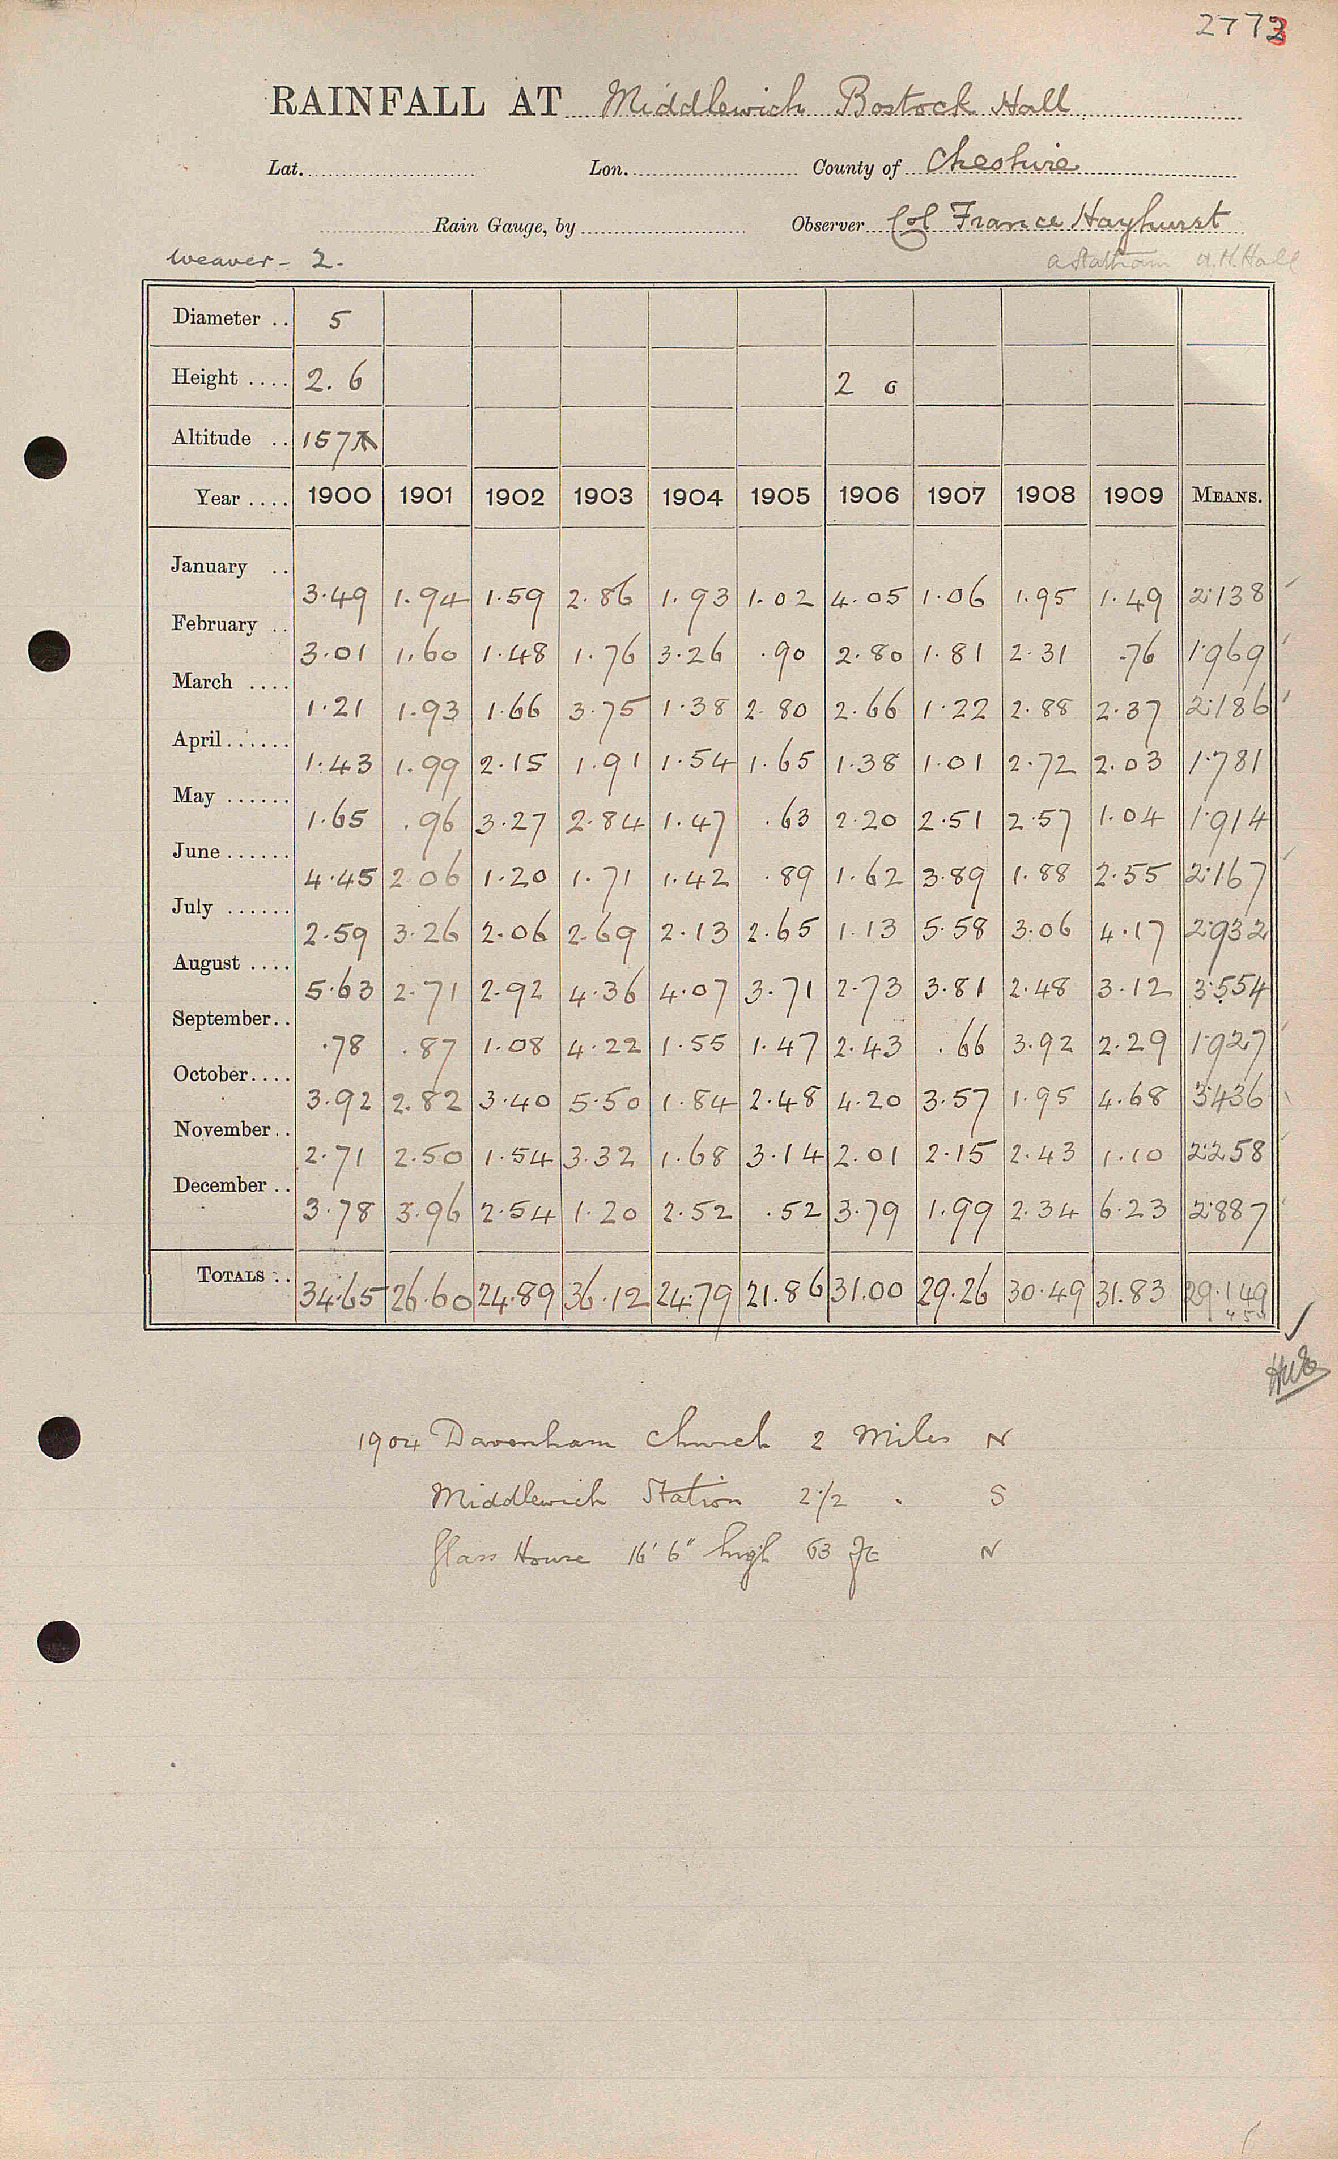 2773
RAINFALL AT Middlewich Bostock Hall
Lat. Lon. County of Cheshire
Rain Gauge, by Observer Col France Hayhurst
Weaver - 2. A Statham A.H. Hall
Diameter .. 5
Height .... 2. 6 2 0
Altitude .. 157
Year .... 1900 1901 1902 1903 1904 1905 1906 1907 1908 1909 MEANS.
January .. 3.49 1.94 1.59 2.86 1.93 1.02 4.05 1.06 1.95 1.49 2.138
February .. 3.01 1.60 1.48 1.76 3.26 .90 2.80 1.81 2.31 .76 1.969
March .... 1.21 1.93 1.66 3.75 1.38 2.80 2.66 1.22 2.88 2.37 2.186
April...... 1.43 1.99 2.15 1.91 1.54 1.65 1.38 1.01 2.72 2.03 1.781
May ...... 1.65 .96 3.27 2.84 1.47 .63 2.20 2.51 2.57 1.04 1.914
June...... 4.45 2.06 1.20 1.71 1.42 .89 1.62 3.89 1.88 2.55 2.167
July ...... 2.59 3.26 2.06 2.69 2.13 2.65 1.13 5.58 3.06 4.17 2.932
August .... 5.63 2.71 2.92 4.36 4.07 3.71 2.73 3.81 2.48 3.12 3.554
September.. .78 .87 1.08 4.22 1.55 1.47 2.43 .66 3.92 2.29 1.927
October.... 3.92 2.82 3.40 5.50 1.84 2.48 4.20 3.57 1.95 4.68 3.436
November.. 2.71 2.50 1.54 3.32 1.68 3.14 2.01 2.15 2.43 1.10 2.258
December .. 3.78 3.96 2.54 1.20 2.52 .52 3.79 1.99 2.34 6.23 2.887
TOTALS .. 34.65 26.60 24.89 36.12 24.79 21.86 31.00 29.26 30.49 31.83 29.149
1904 Davenham Church 2 Miles N
Middlewich Station 2 1/2 . S
Glass House 16' 6" high 63 ft N